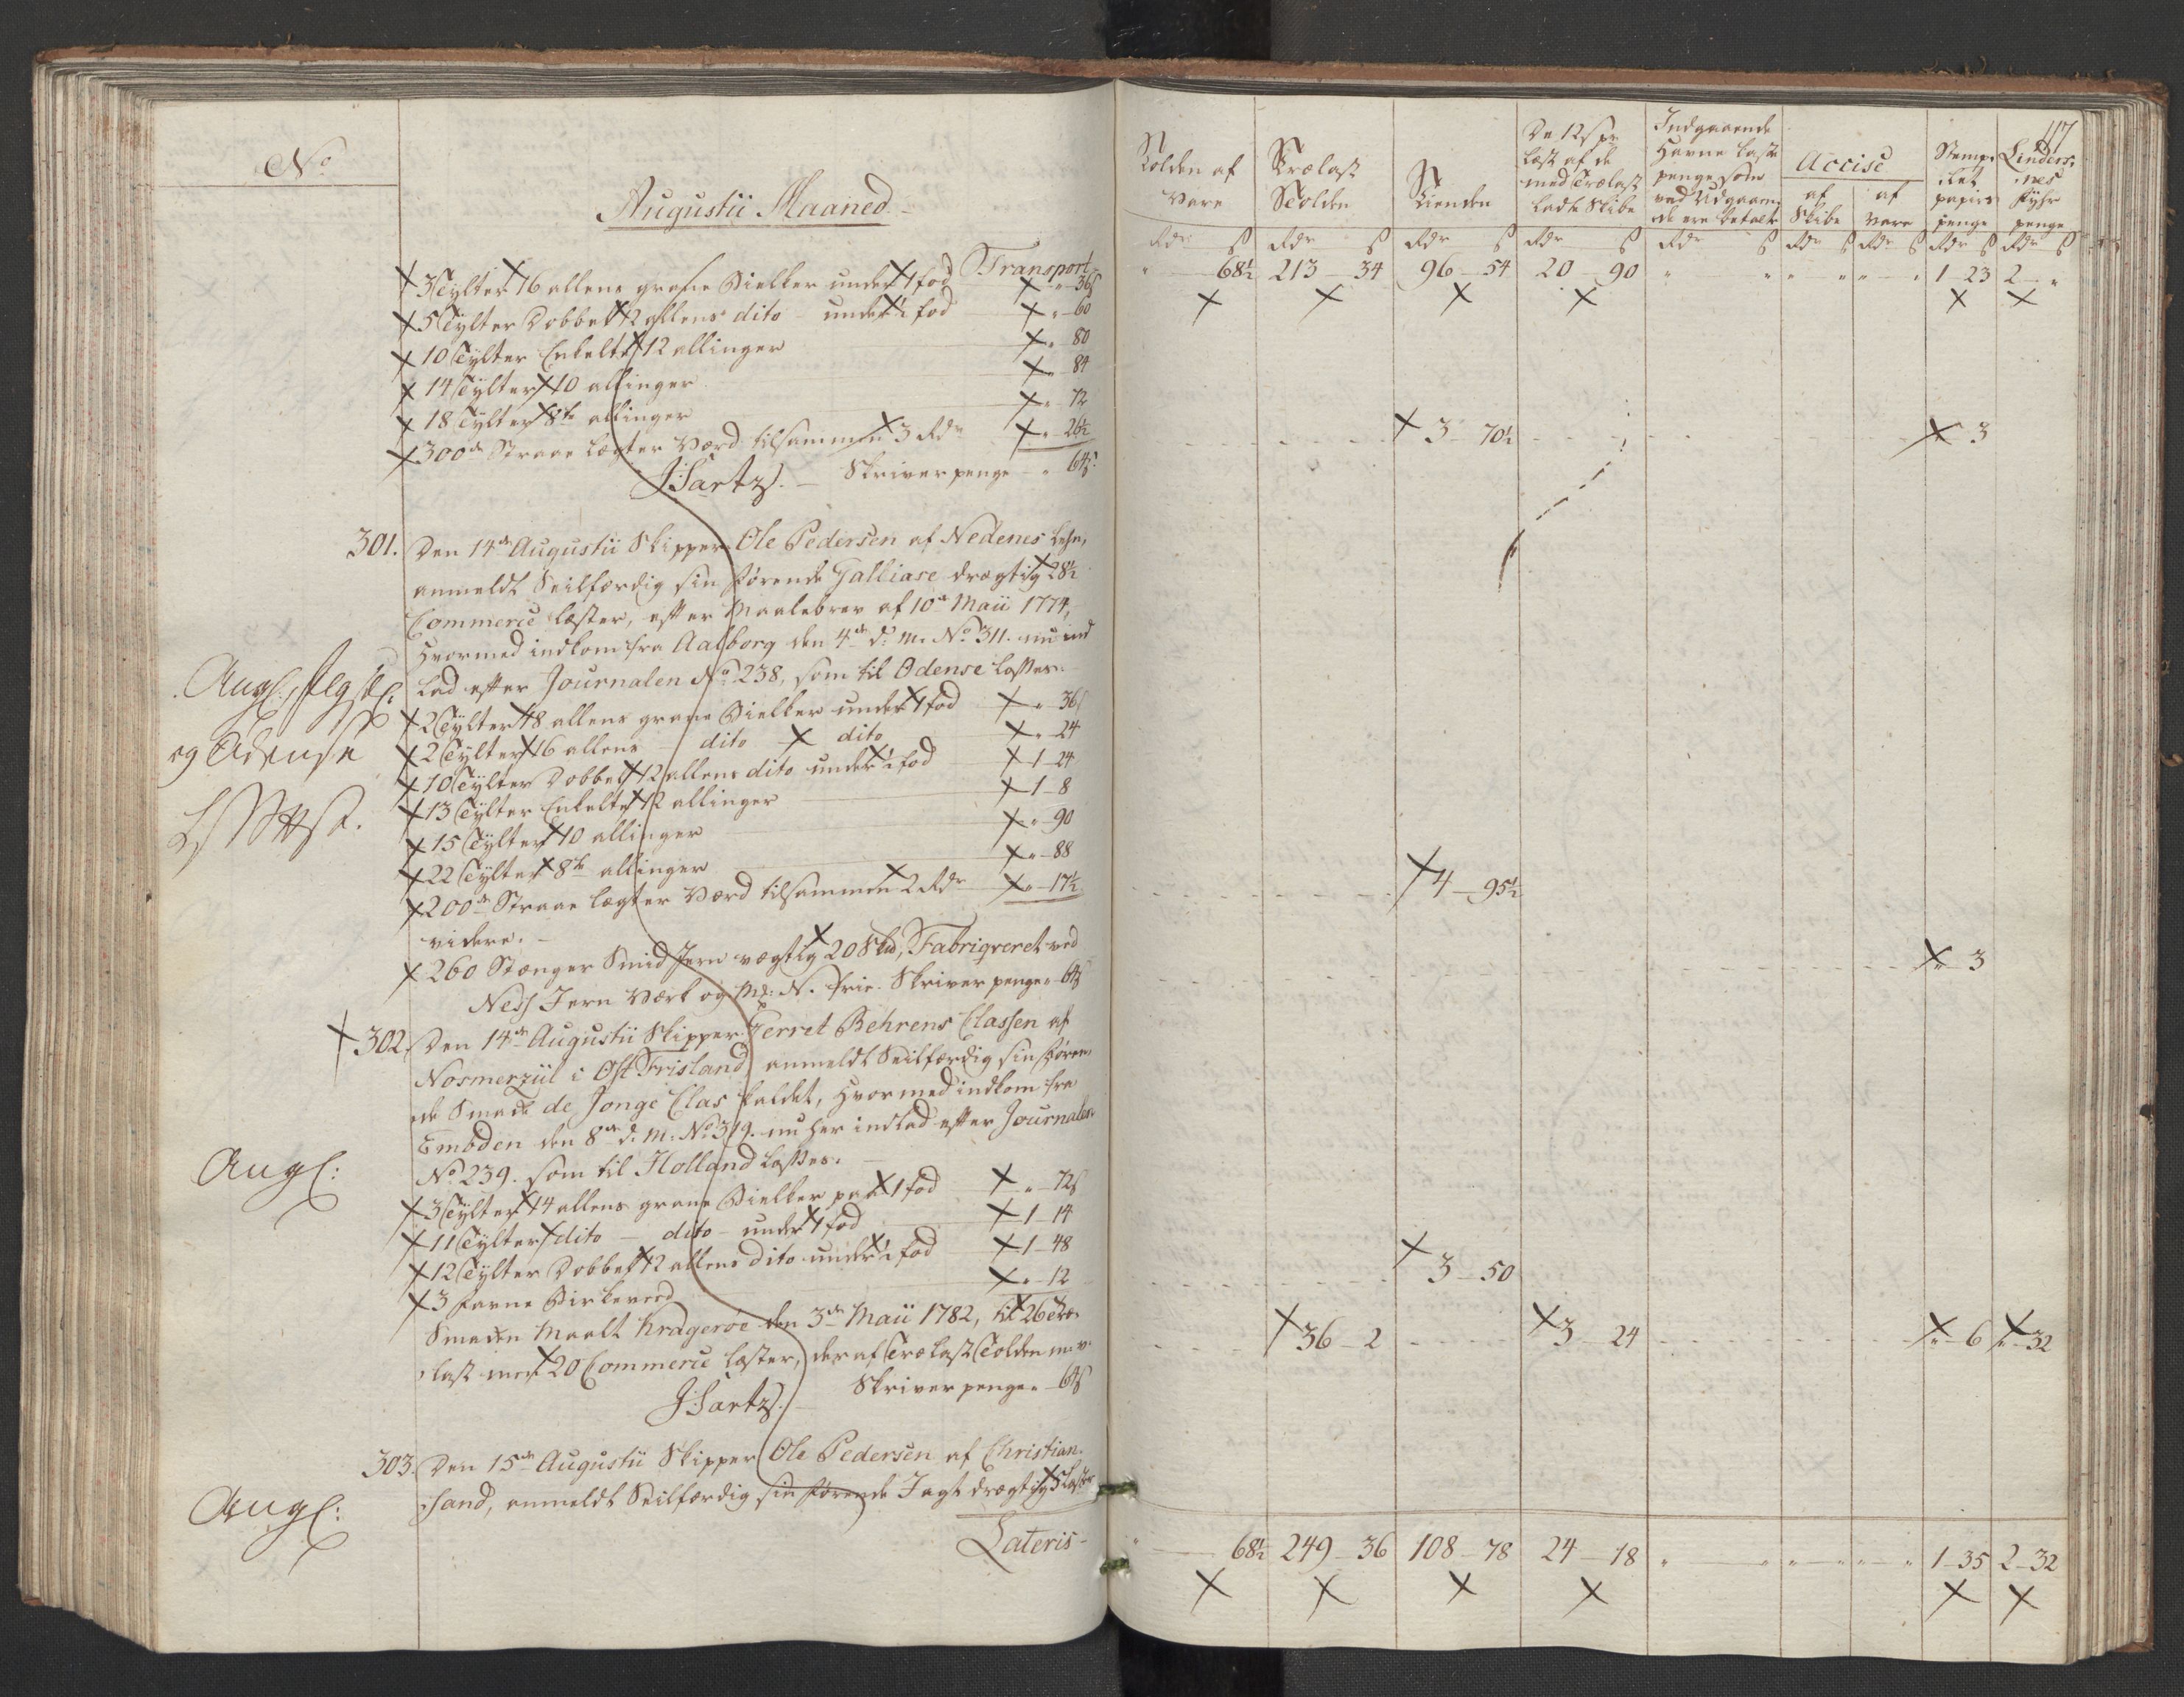 No
Augustii Maaned
Transport
3 Tylter 16 allens grane Bielker under 1 fod " 36 s
5 Tylter Dobbelt 12 allens dito - under ½ fod " 60
10 Tylter Enkelte 12 allinger " 80
14 Tylter 10 allinger " 84
18 Tylter 8te allinger " 72
300de Straae Lægter Værd tilsammen 3 Rdr " 26½
J Sartz. - Skriverpenge - " 6 s
301. Den 14de Augustii Skipper Ole Pedersen af Nedenes Lehn,
anmeldt Seilfærdig sin førende Galliase drægtig 28½
Commerce læster, efter Maalebrev af 10de Maii 1774,
Hvormed indkom fra Aalborg den 4de d: M. No 311. nu ind
lad efter Journalen No 238, som til Odense losses.
2 Tylter 18 allens grane Bielker under 1 fod " 36 s
2 Tylter 16 allens - dito dito " 24
10 Tylter Dobbelt 12 allens dito under ½ fod 1 - 24
13 Tylter Enkelte 12 allinger 1 - 8
15 Tylter 10 allinger " 90
22 Tylter 8te allinger " 88
200de Straae Lægter Værd tilsammen 2 Rdr " 17½
videre. -
260 Stænger Smid Jern vægtig 20 Sk℔, Fabriqveret ved
Ness Jern Værk og M: N. frie. Skriverpenge " 6 s
Angl:
og Odense
302. Den 14de Augustii Skipper Gerret Behrens Classen af
Nosmerziil i Ost Frisland, anmeldt Seilfærdig sin føren,
de Smack de Jonge Clas kaldet, Hvormed indkom fra
Embden den 8de d: M: No 319. nu her indlad efter Journalen
No 239. som til Holland losses.
3 Tylter 14 allens grane Bielker paa 1 fod " 72 s
11 Tylter dito - dito - under 1 fod 1 - 14
12 Tylter Dobbelt 12 allens dito under ½ fod 1 - 48
3 favne Birkeved " 12
Smacken Maalt Kragerøe den 3de Maii 1782, til 26 Træ,
last med 20 Commerce læster, deraf Trælast Tolden m: v.
J Sartz. - Skriverpenge " 6 s
Angl:
303. Den 15de Augustii Skipper Ole Pedersen af Christian,
sand, anmeldt Seilfærdig sin førende Jagt drægtig 5 læster
Angl:
Lateris -
117
Tolden af Vare
Trælast Tolden
Tienden
De 12 s pr læst af de med Trælast ladte Skibe
Indgaaende Havne laste penge som ved Udgaaende ere betalte
Accise
af Skibe
af Vare
Stemp, let papirs penge
Linders, nes fyhr penge
Rdr s Rdr s Rdr s Rdr s Rdr s Rdr s Rdr s Rdr s Rdr s
" 68½ 213 - 34 96 - 54 20 - 90 " " " " " " 1 - 23 2 - "
3 - 70½ " 3
4 - 95½
" 3
3 - 50
36 - 2 3 - 24 " 6 " 32
" 68½ 249 - 36 108 - 78 24 - 18 " " " " " " 1 - 35 2 - 32